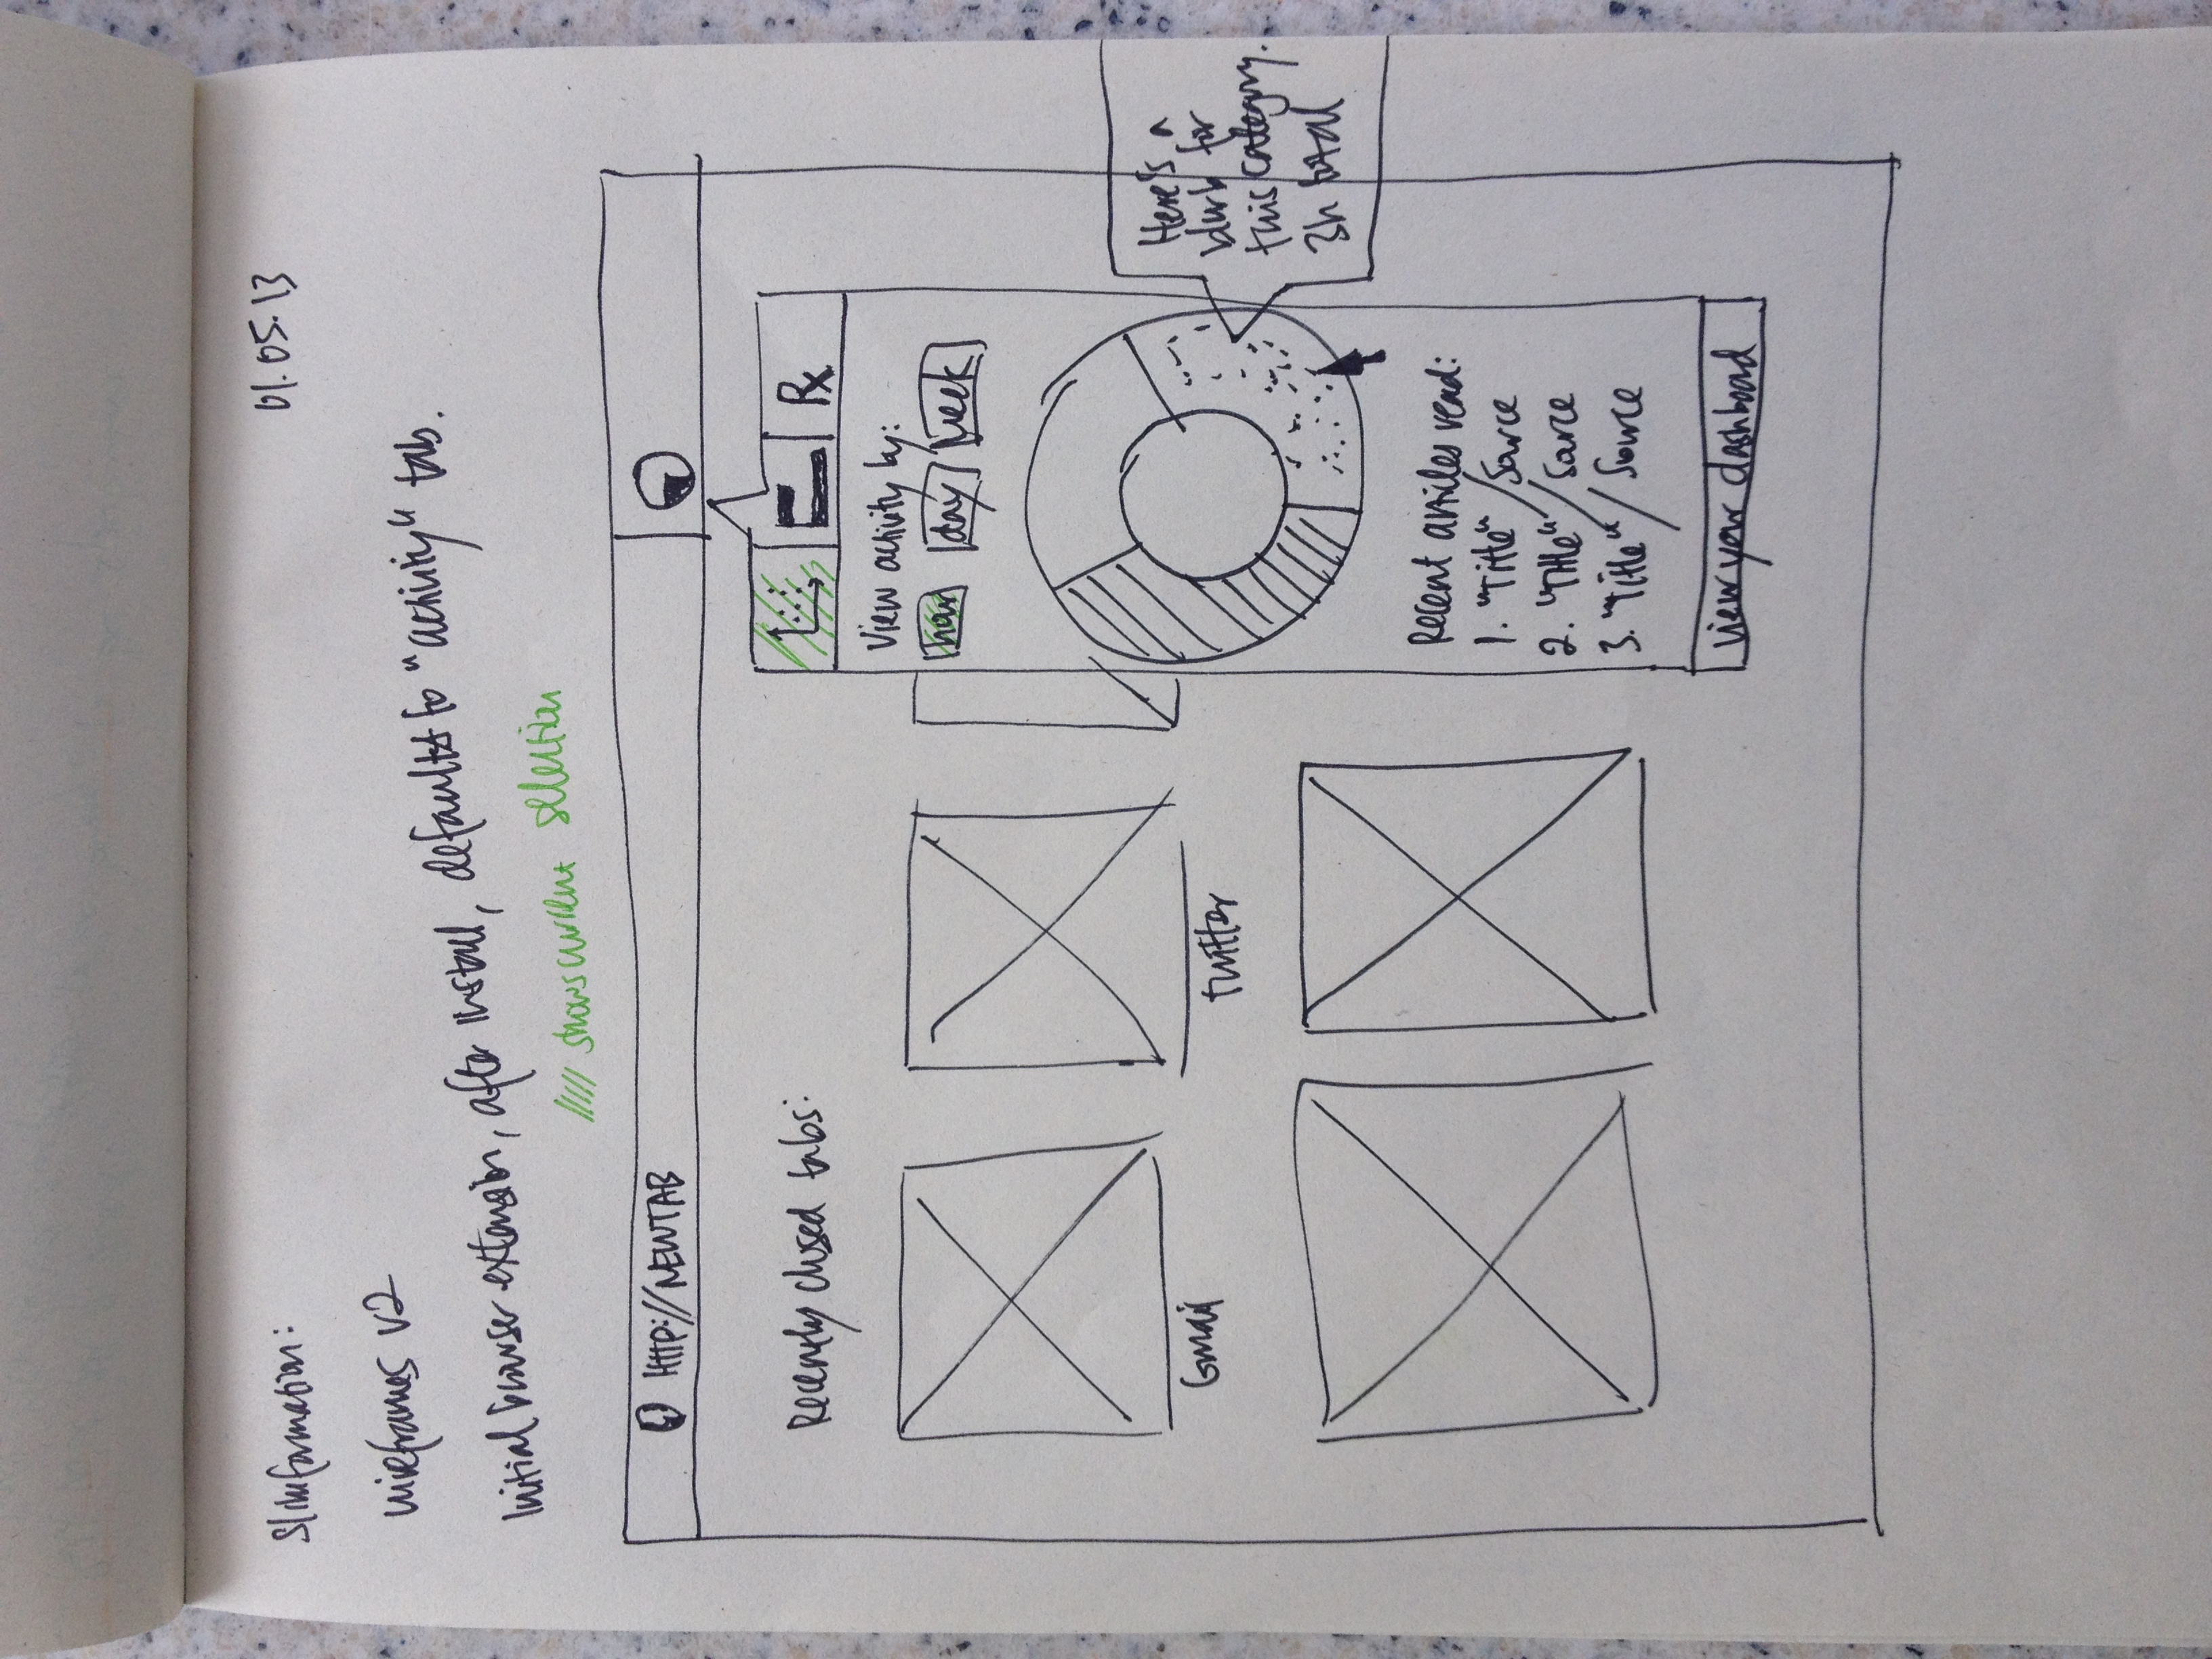 Slimformation:
01.05.13
wireframes v2
Initial browser extension, after install, defaults to "activity" tab.
shows current selection
HTTP://NEWTAB
Recently closed tabs:
Rx
View activity by:
hour day week
Gmail
twitter
Here's a
blurb for
this category.
3h total
Recent articles read:
1. "Title" / Source
2. "Title" / Source
3. "Title" / Source
view your dashboard